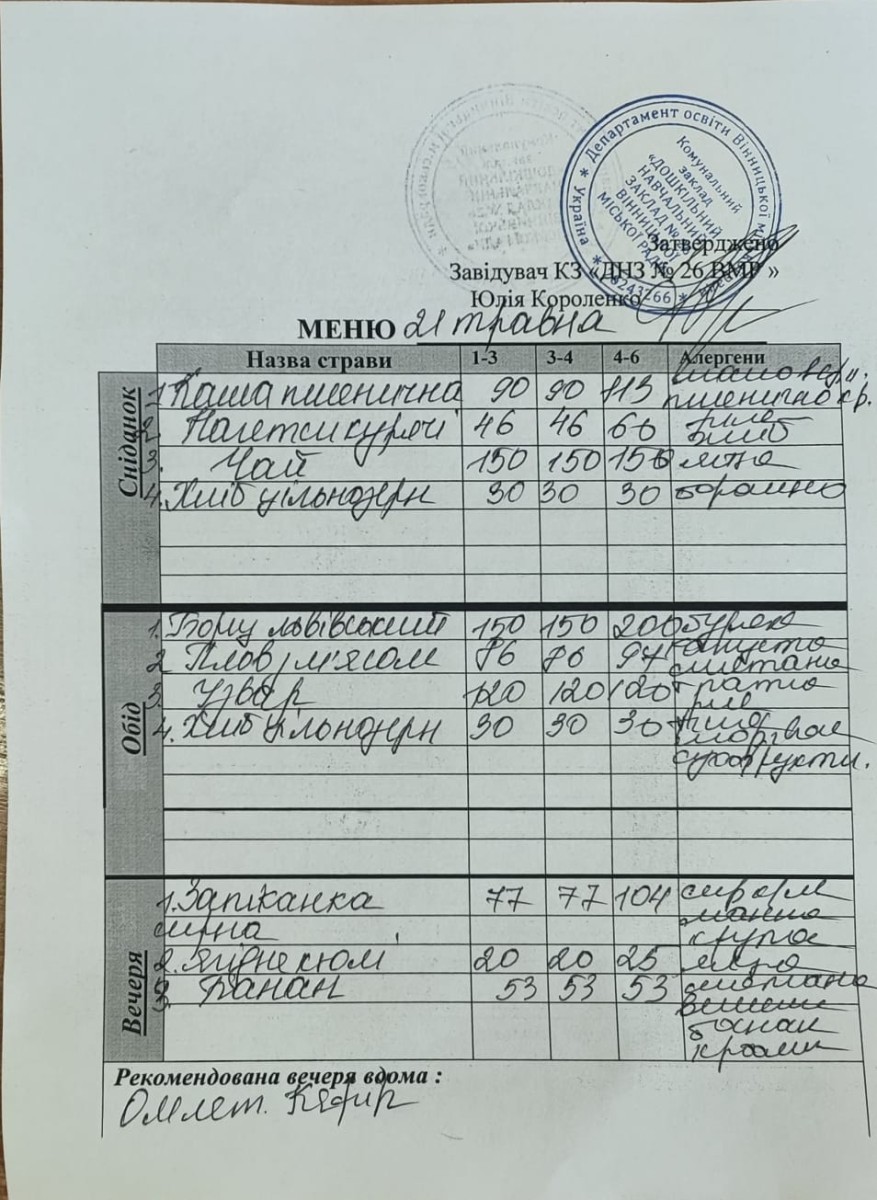 Департамент освіти Вінницької м
Україна
Комунальний
заклад
«ДОШКІЛЬНИЙ
НАВЧАЛЬНИЙ
ЗАКЛАД №
ВІННИЦЬКОЇ
МІСЬКОЇ РАДИ
Затверджено
Завідувач КЗ «ДНЗ № 26 ВМР »
Юлія Короленко
МЕНЮ 21 травна
Назва страви 1-3 3-4 4-6 Алергени
Сніданок
1. Каша пшенична 90 90 113 масло вер.
пшенична кр.
2. Нагетси курячі 46 46 60 филе
хліб
3. Чай 150 150 150 яйца
4. Хліб цільнозерн 30 30 30 борошно
Обід
1. Борщ львівський 150 150 200 буряк
2. Плов з м'ясом 76 76 97 капуста
сметана
3. Узвар 120 120 120 томат
рис
4. Хліб цільнозерн 30 30 30 хліб
морква
сухофрукти.
Вечеря
1. Запіканка 77 77 104 сир
сирна манна
крупа
2. Ягідне кюлі 20 20 25 яйца
3. Банан 53 53 53 сметана
банан
Рекомендована вечеря вдома :
Омлет. Кефир